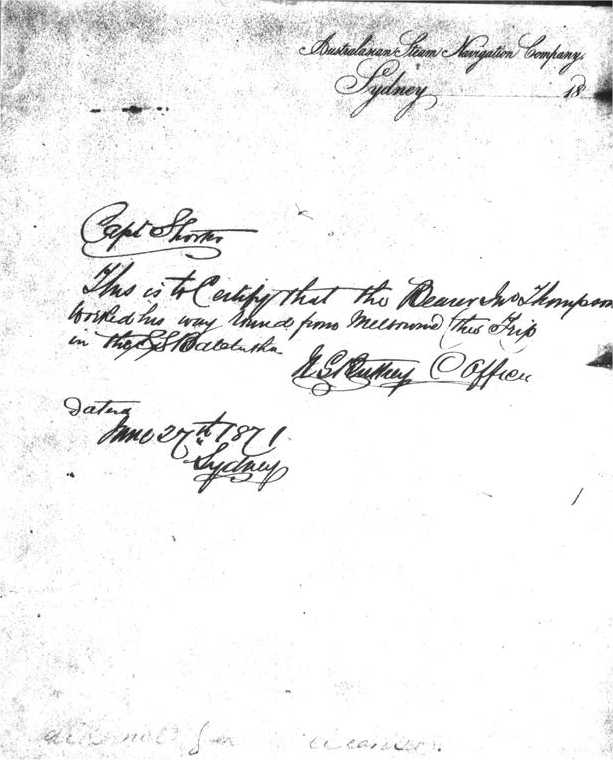 Australasian Steam Navigation Company.
Sydney 18
Capt Shorts
This is to Certify that the Bearer Jno Thompson
Worked his way round from Melbourne this Trip
in the
C Officer
dated
June 27th 1871.
Sydney